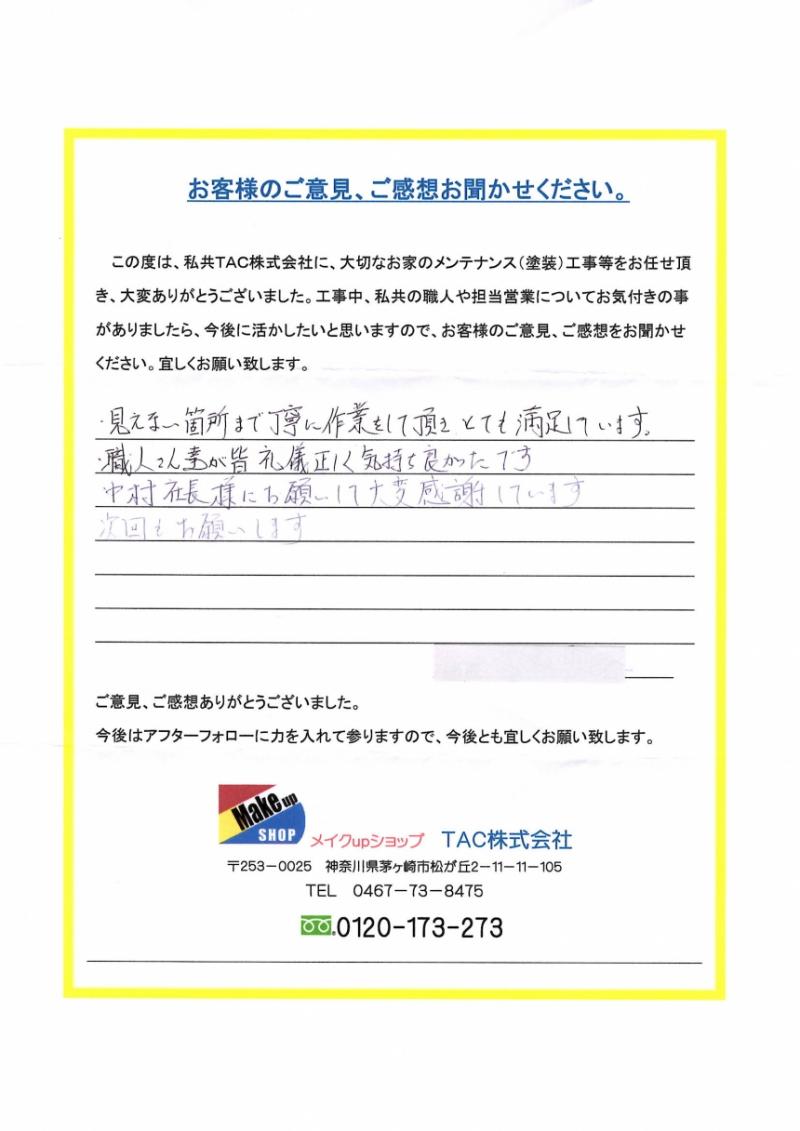 お客様のご意見、ご感想お聞かせください。
この度は、私共TAC株式会社に、大切なお家のメンテナンス(塗装)工事等をお任せ頂
き、大変ありがとうございました。工事中、私共の職人や担当営業についてお気付きの事
がありましたら、今後に活かしたいと思いますので、お客様のご意見、ご感想をお聞かせ
ください。宜しくお願い致します。
・見えない箇所まで丁寧に作業をして頂きとても満足しています。
・職人さん達が皆礼儀正しく気持ち良かったです
中村社長様にお願いして大変感謝しています
次回もお願いします
ご意見、ご感想ありがとうございました。
今後はアフターフォローに力を入れて参りますので、今後とも宜しくお願い致します。
Make up
SHOP
メイクupショップ TAC株式会社
〒253-0025 神奈川県茅ヶ崎市松が丘2-11-11-105
TEL 0467-73-8475
0120-173-273